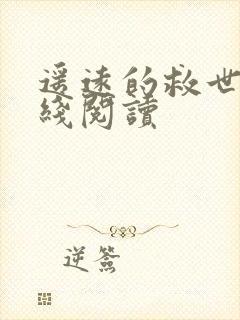 遥远的救世
线阅读
逆签